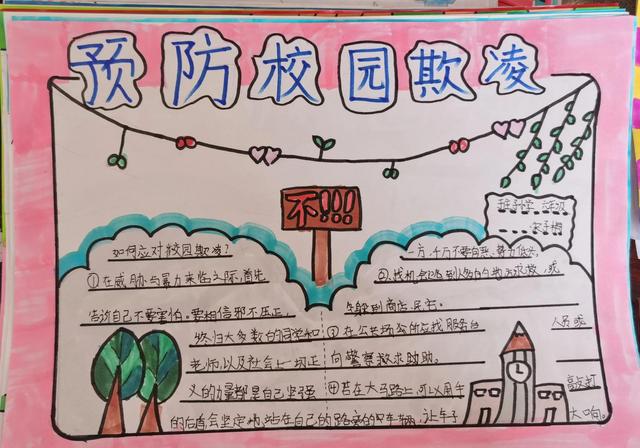 预防校园欺凌
不!!!
六年级
如何应对校园欺凌?
①在威胁与暴力来临之际,首先
告诉自己不要害怕。要相信邪不压正,
终归大多数的同学和
老师,以及社会上一切正
义的力量都是自己坚强
的后盾会坚定地站在自己的
一方,千万不要向恶势力低头
②找机会跑到人多的地方求救,或
③在公共场合应找服务台人员或
向警察救求助助。
④若在大马路上,可以
车辆,让车子
大叫。